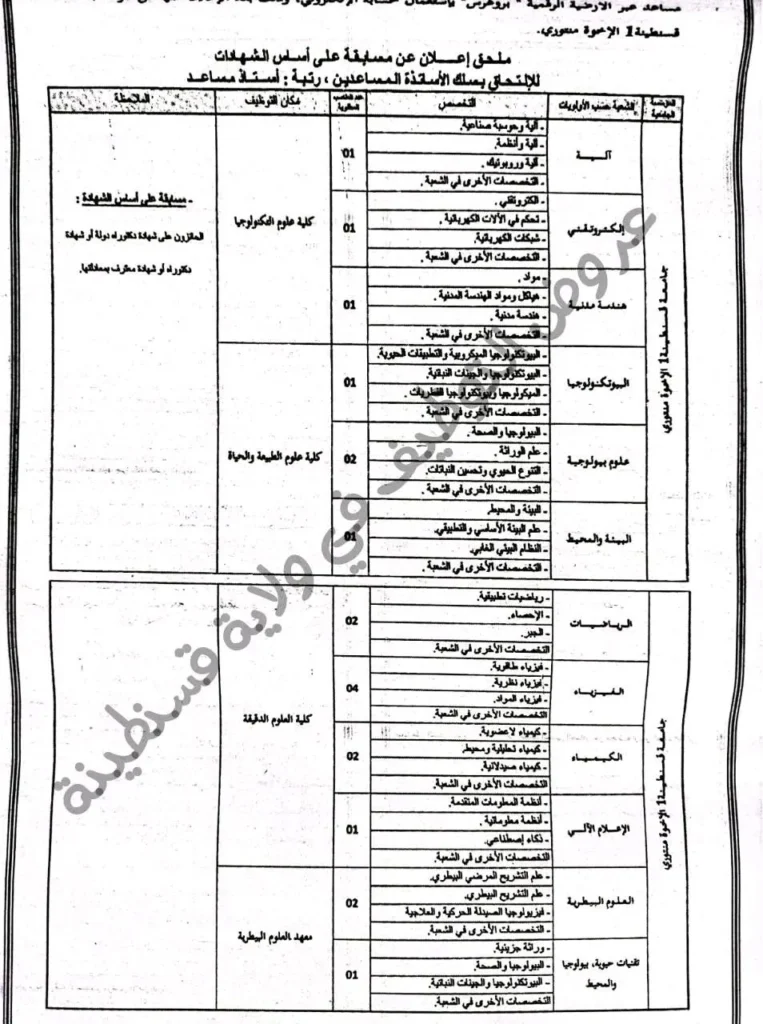 مساعد عبر الأرضية الرقمية "بروغرس" بإستعمال حسابه الإلكتروني،
قسنطينة1 الإخوة منتوري.
ملحق إعلان عن مسابقة على أساس الشهادات
للإلتحاق بسلك الأساتذة المساعدين، رتبة: أستاذ مساعد
الشعبة حسب الأولويات
التخصص
مكان التوظيف
الملاحظة
جامعة قسنطينة1 الإخوة منتوري
آلية
- آلية وحوسبة صناعية.
- آلية وأنظمة.
- آلية وروبوتيك.
- التخصصات الأخرى في الشعبة.
01
كلية علوم التكنولوجيا
- مسابقة على أساس الشهادة:
الحائزون على شهادة دكتوراه دولة أو شهادة
دكتوراه أو شهادة معترف بمعادلتها.
إلكتروتقني
- الكتروتقني.
- تحكم في الآلات الكهربائية.
- شبكات الكهربائية.
- التخصصات الأخرى في الشعبة.
01
هندسة مدنية
- مواد.
- هياكل ومواد الهندسة المدنية.
- هندسة مدنية.
- التخصصات الأخرى في الشعبة.
01
البيوتكنولوجيا
- البيوتكنولوجيا الميكروبية والتطبيقات الحيوية.
- البيوتكنولوجيا والجينات النباتية.
- الميكولوجيا وبيوتكنولوجيا الفطريات.
- التخصصات الأخرى في الشعبة.
01
كلية علوم الطبيعة والحياة
علوم بيولوجية
- البيولوجيا والصحة.
- علم الوراثة.
- التنوع الحيوي وتحسين النباتات.
- التخصصات الأخرى في الشعبة.
02
البيئة والمحيط
- البيئة والمحيط.
- علم البيئة الأساسي والتطبيقي.
- النظام البيئي الغابي.
- التخصصات الأخرى في الشعبة.
01
جامعة قسنطينة1 الإخوة منتوري
الرياضيات
- رياضيات تطبيقية.
- الإحصاء.
- الجبر.
التخصصات الأخرى في الشعبة.
02
كلية العلوم الدقيقة
الفيزياء
- فيزياء طاقوية.
- فيزياء نظرية.
- فيزياء المواد.
- التخصصات الأخرى في الشعبة.
04
الكيمياء
- كيمياء لاعضوية.
- كيمياء تحليلية ومحيط.
- كيمياء صيدلانية.
التخصصات الأخرى في الشعبة.
02
الإعلام الآلي
- أنظمة المعلومات المتقدمة.
- أنظمة معلوماتية.
- ذكاء إصطناعي.
التخصصات الأخرى في الشعبة.
01
العلوم البيطرية
- علم التشريح المرضي البيطري.
- علم التشريح البيطري.
- فيزيولوجيا الصيدلة الحركية والعلاجية
- التخصصات الأخرى في الشعبة.
02
معهد العلوم البيطرية
تقنيات حيوية، بيولوجيا
والمحيط
- وراثة جزيئية.
- البيولوجيا والصحة.
- البيوتكنولوجيا والجينات النباتية.
التخصصات الأخرى في الشعبة.
01
عروض التوظيف في ولاية قسنطينة